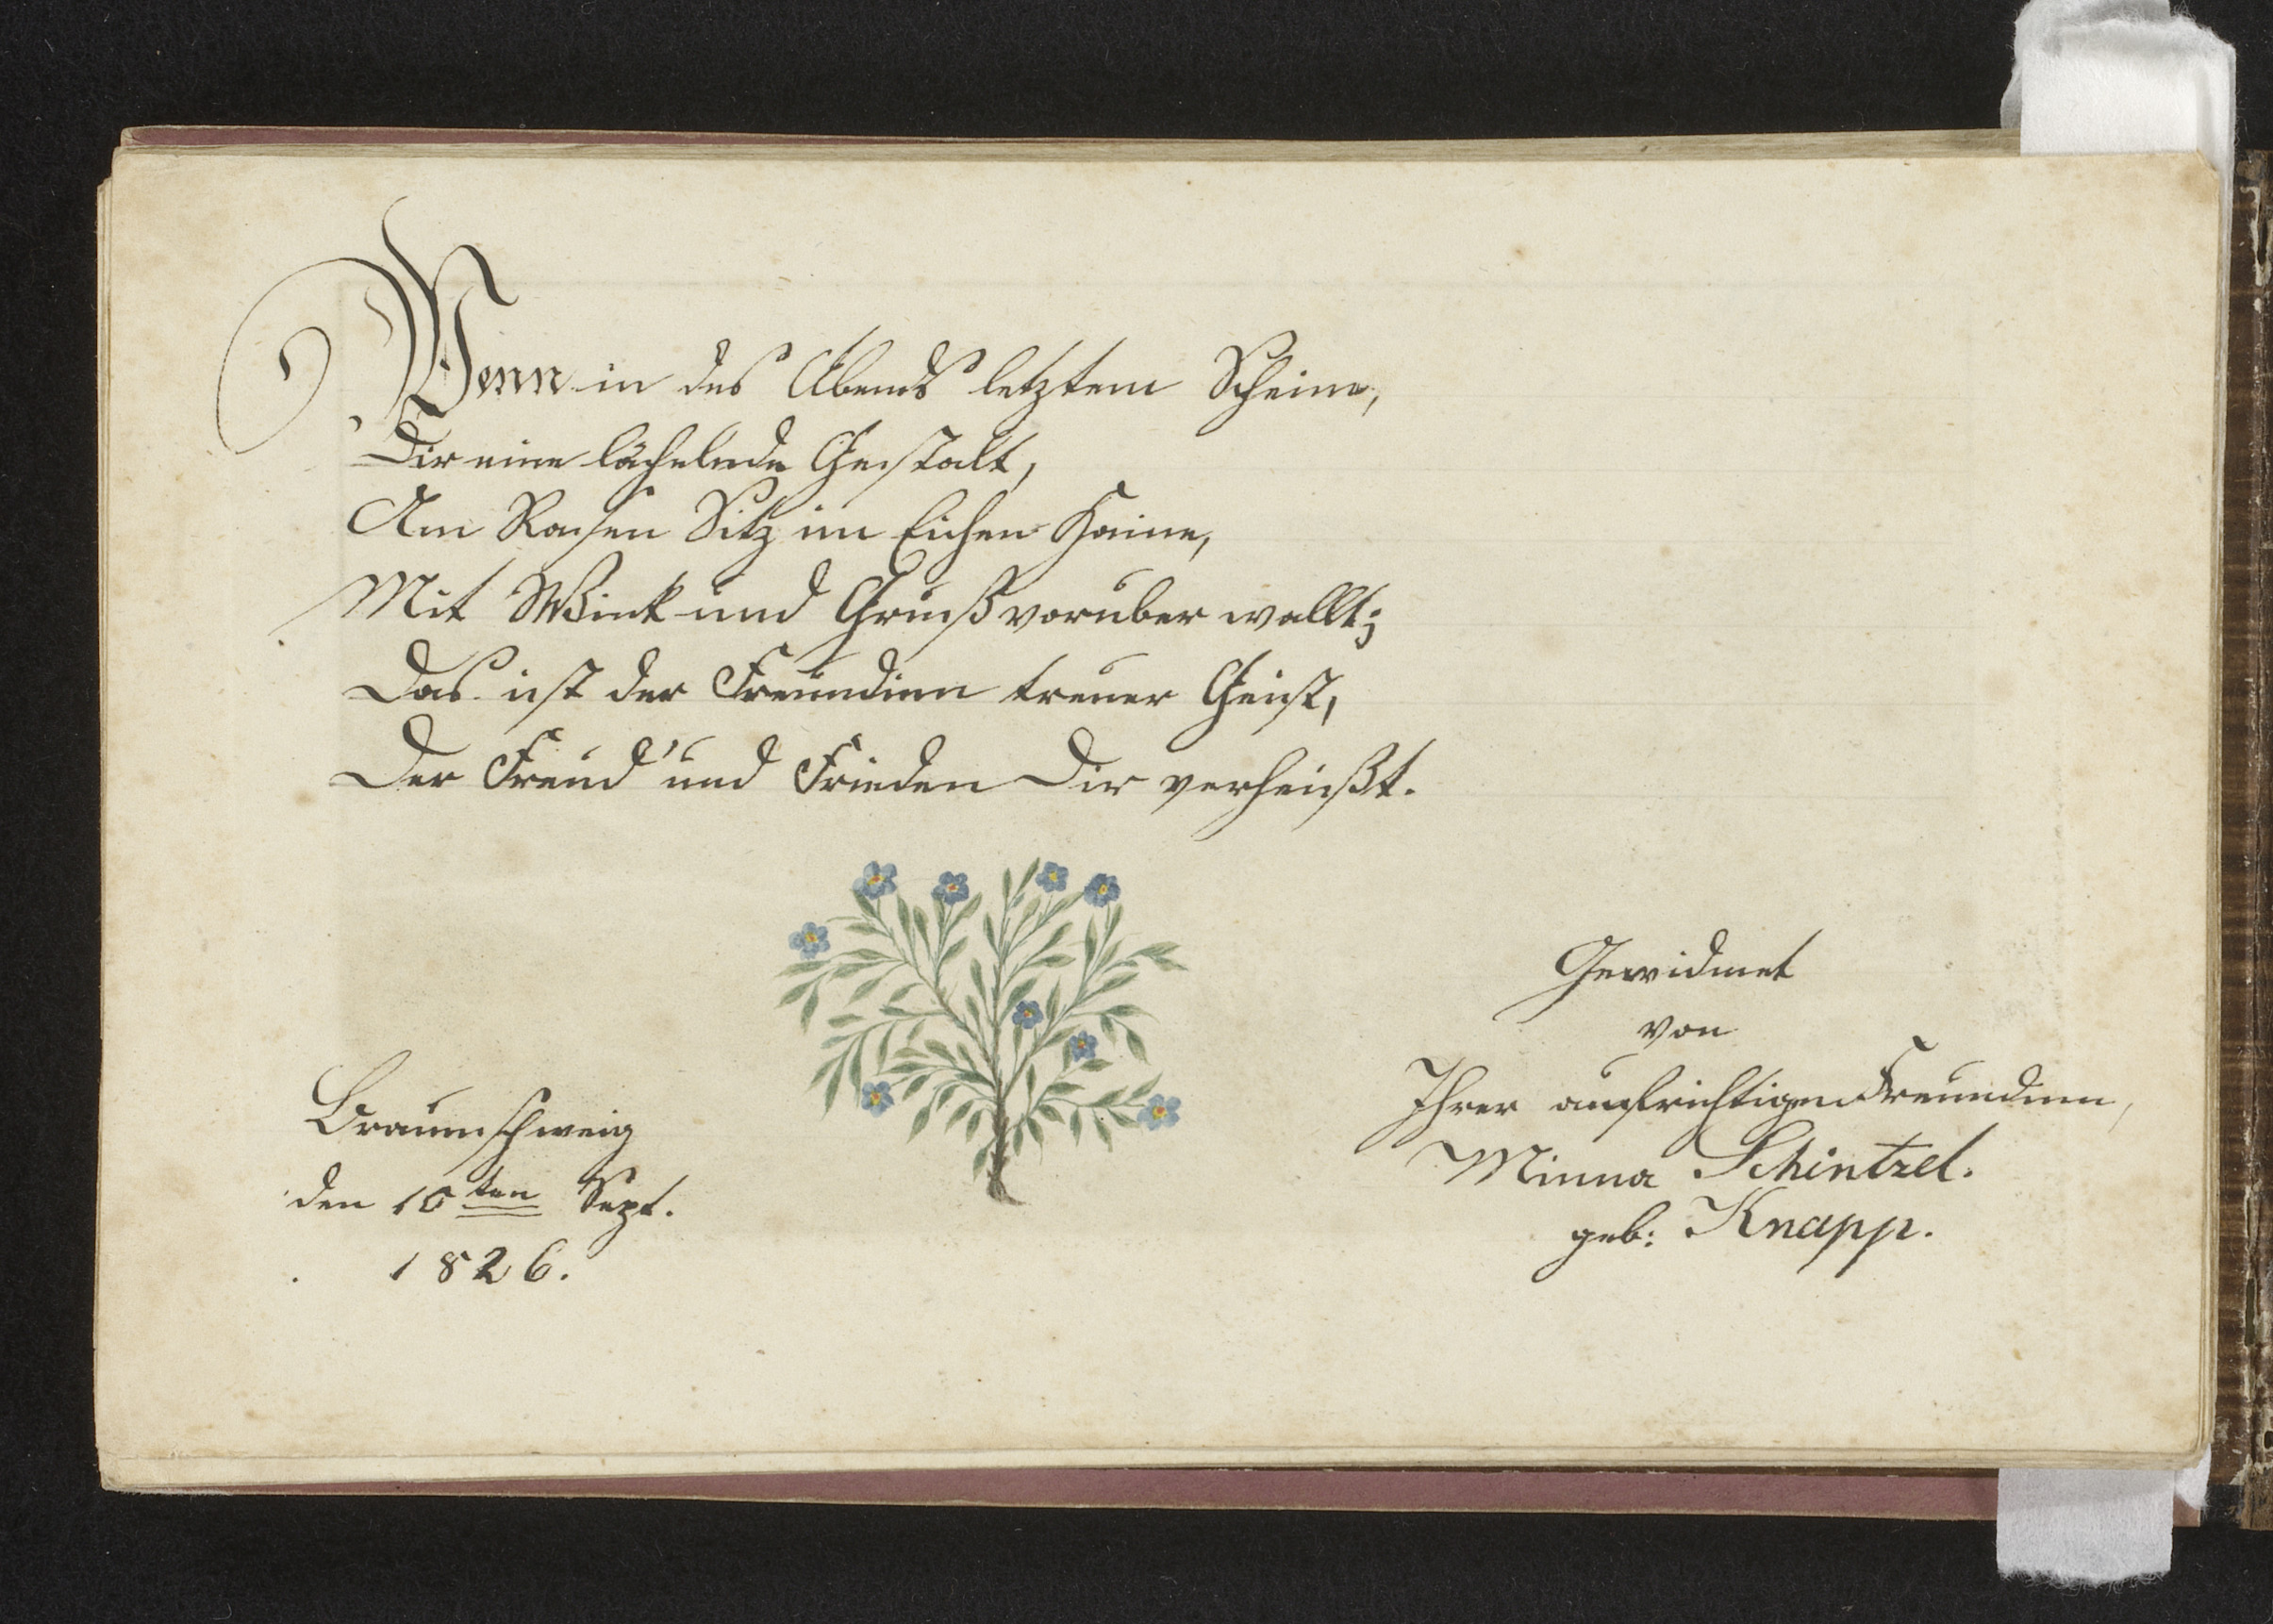 Wenn in des Abends letztem Scheine,
Dir eine lächelnde Gestalt,
Am Rasen Sitz im Eichen Haine,
Mit Wink und Gruß vorüber wallt;
Das ist der Freundinn treuer Geist,
Der Freud' und Frieden Dir verheißt.
Braunschweig
den 10ten Sept.
1826.
Gewidmet
von
Ihrer aufrichtigen Freundinn,
Minna Schintzel.
geb: Knapp.